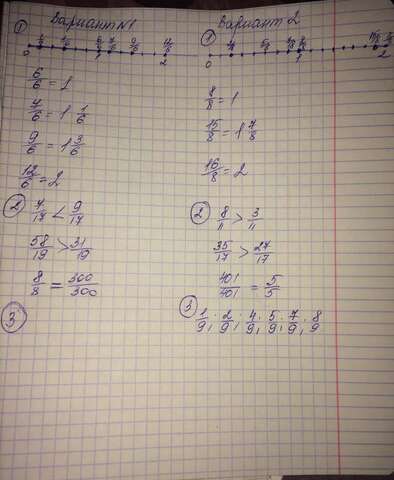 Вариант №1
①
0 1 2
6/6 = 1
7/6 = 1 1/6
9/6 = 1 3/6
12/6 = 2
② 7/17 < 9/17
58/19 > 31/19
8/8 = 300/300
③
Вариант 2
①
0 1 2
8/8 = 1
15/8 = 1 7/8
16/8 = 2
② 8/11 > 3/11
35/17 > 27/17
401/401 = 5/5
③ 1/9; 2/9; 4/9; 5/9; 7/9; 8/9